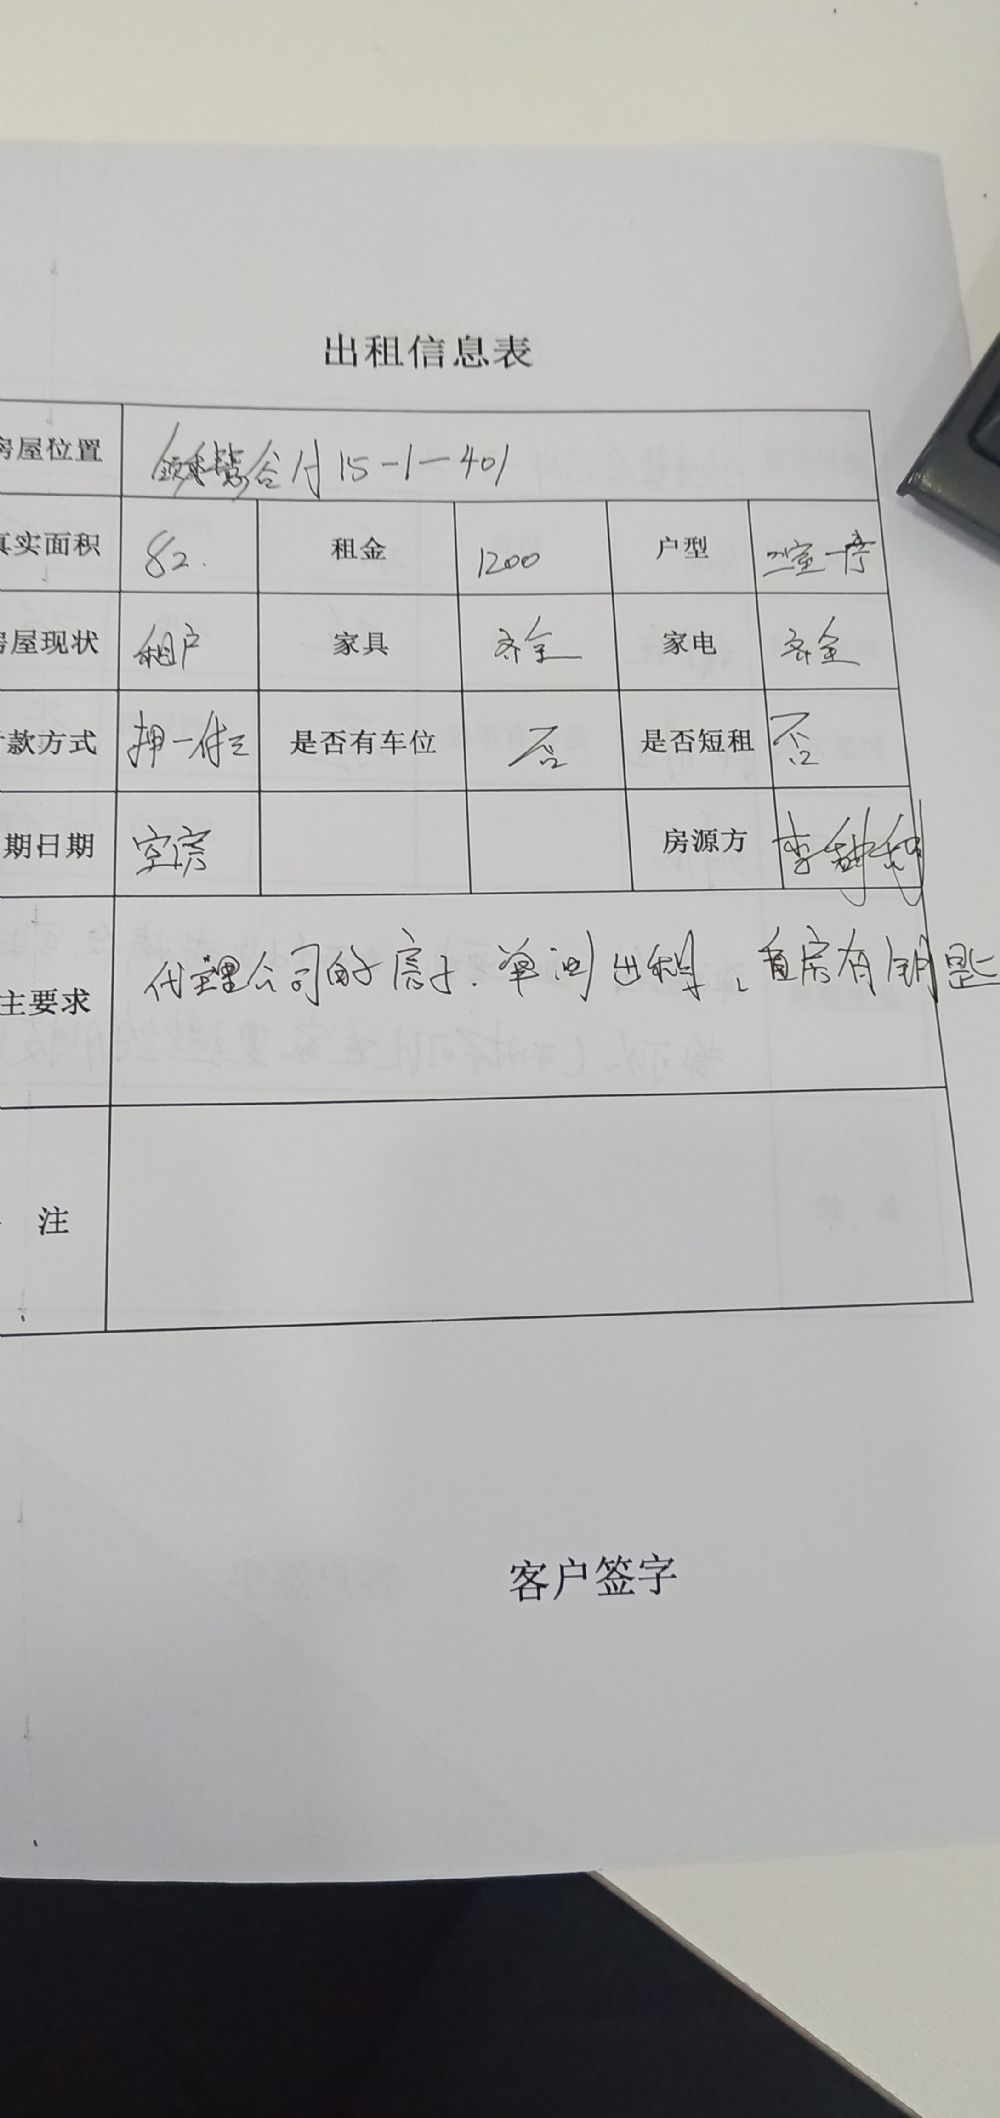 出租信息表
房屋位置 15-1-401
真实面积 82. 租金 1200 户型 二室一厅
房屋现状 租户 家具 齐全 家电 齐全
款方式 押一付三 是否有车位 否 是否短租 否
期日期 空房 房源方 李
主要求 代理公司的房子、单别出租、看房有钥匙
注
客户签字